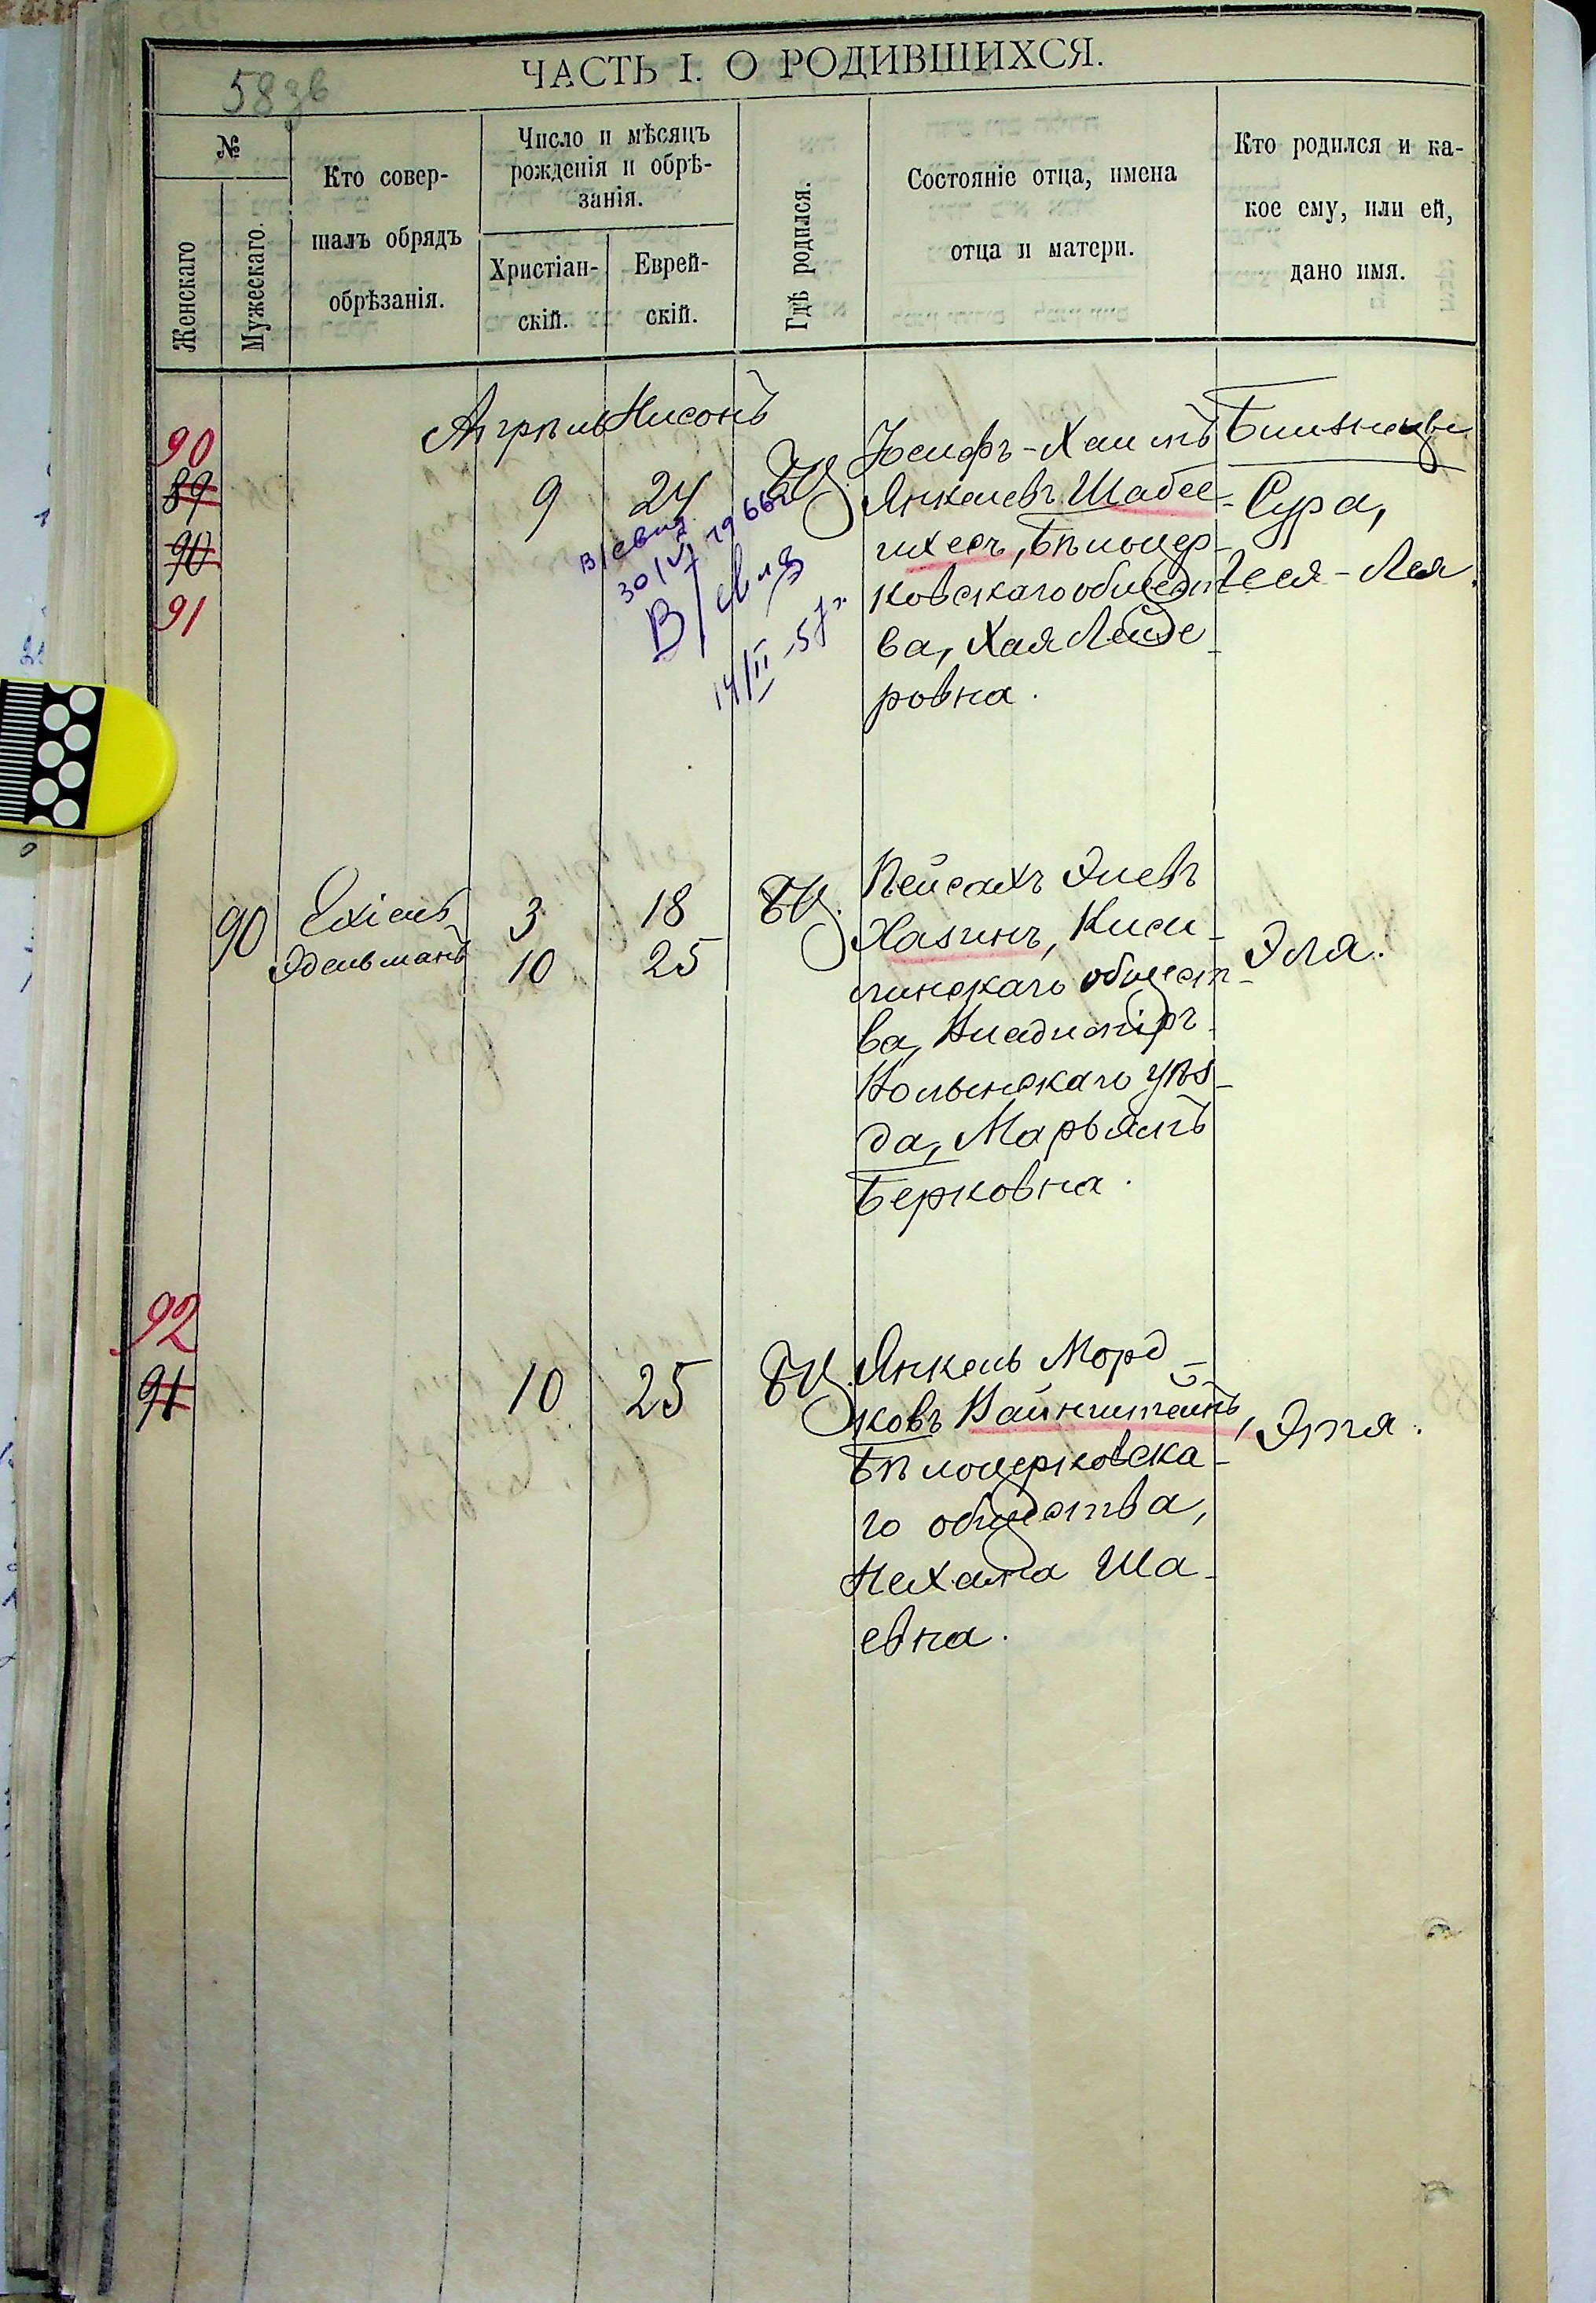 58 зв
ЧАСТЬ I. О РОДИВШИХСЯ.
№
Женскаго
Мужескаго.
Кто совер-
шалъ обрядъ
обрѣзанія.
Число и мѣсяцъ
рожденія и обрѣ-
занія.
Христіан-
скій.
Еврей-
скій.
Гдѣ родился.
Состояніе отца, имена
отца и матери.
Кто родился и ка-
кое ему, или ей,
дано имя.
Апрѣль Нисонъ
90
89
90
91
9
24
БЦ.
Іосифъ-Хаимъ
Янкелевъ Шабсе-
Бѣлоцер-
ковскаго общест-
ва, Хая Лейзе-
ровна.
Близнецы
Сура,
Лея.
30/VI 1966
14/II-57г.
90
Ехіель
Эдельманъ
3
10
18
25
БЦ.
Пейсахъ Элевъ
Хазинъ, Киси-
линскаго общест-
ва, Владимiръ-
Волынскаго уѣз-
да, Марьямъ
Берковна.
Эля.
92
91
10
25
БЦ.
Янкель Морд-
ковъ Вайнштейнъ,
Бѣлоцерковска-
го общества,
Нехама Ша-
евна.
Этя.